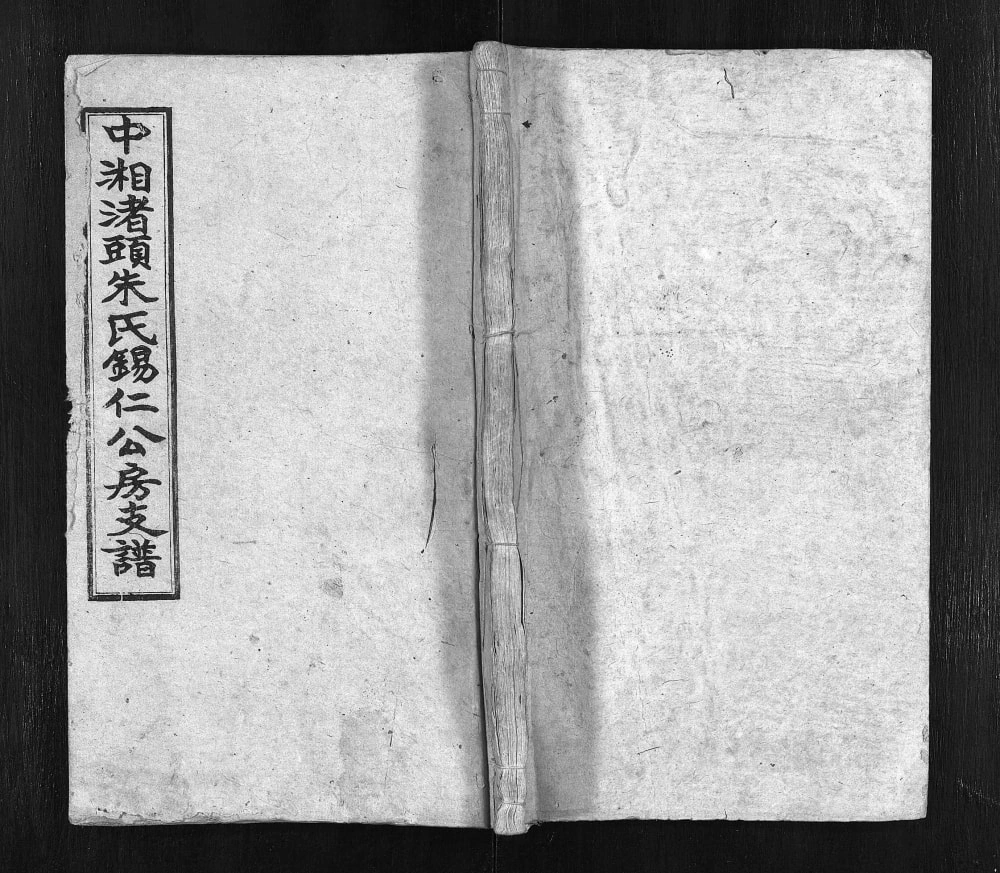 中湘渚頭朱氏錫仁公房支譜